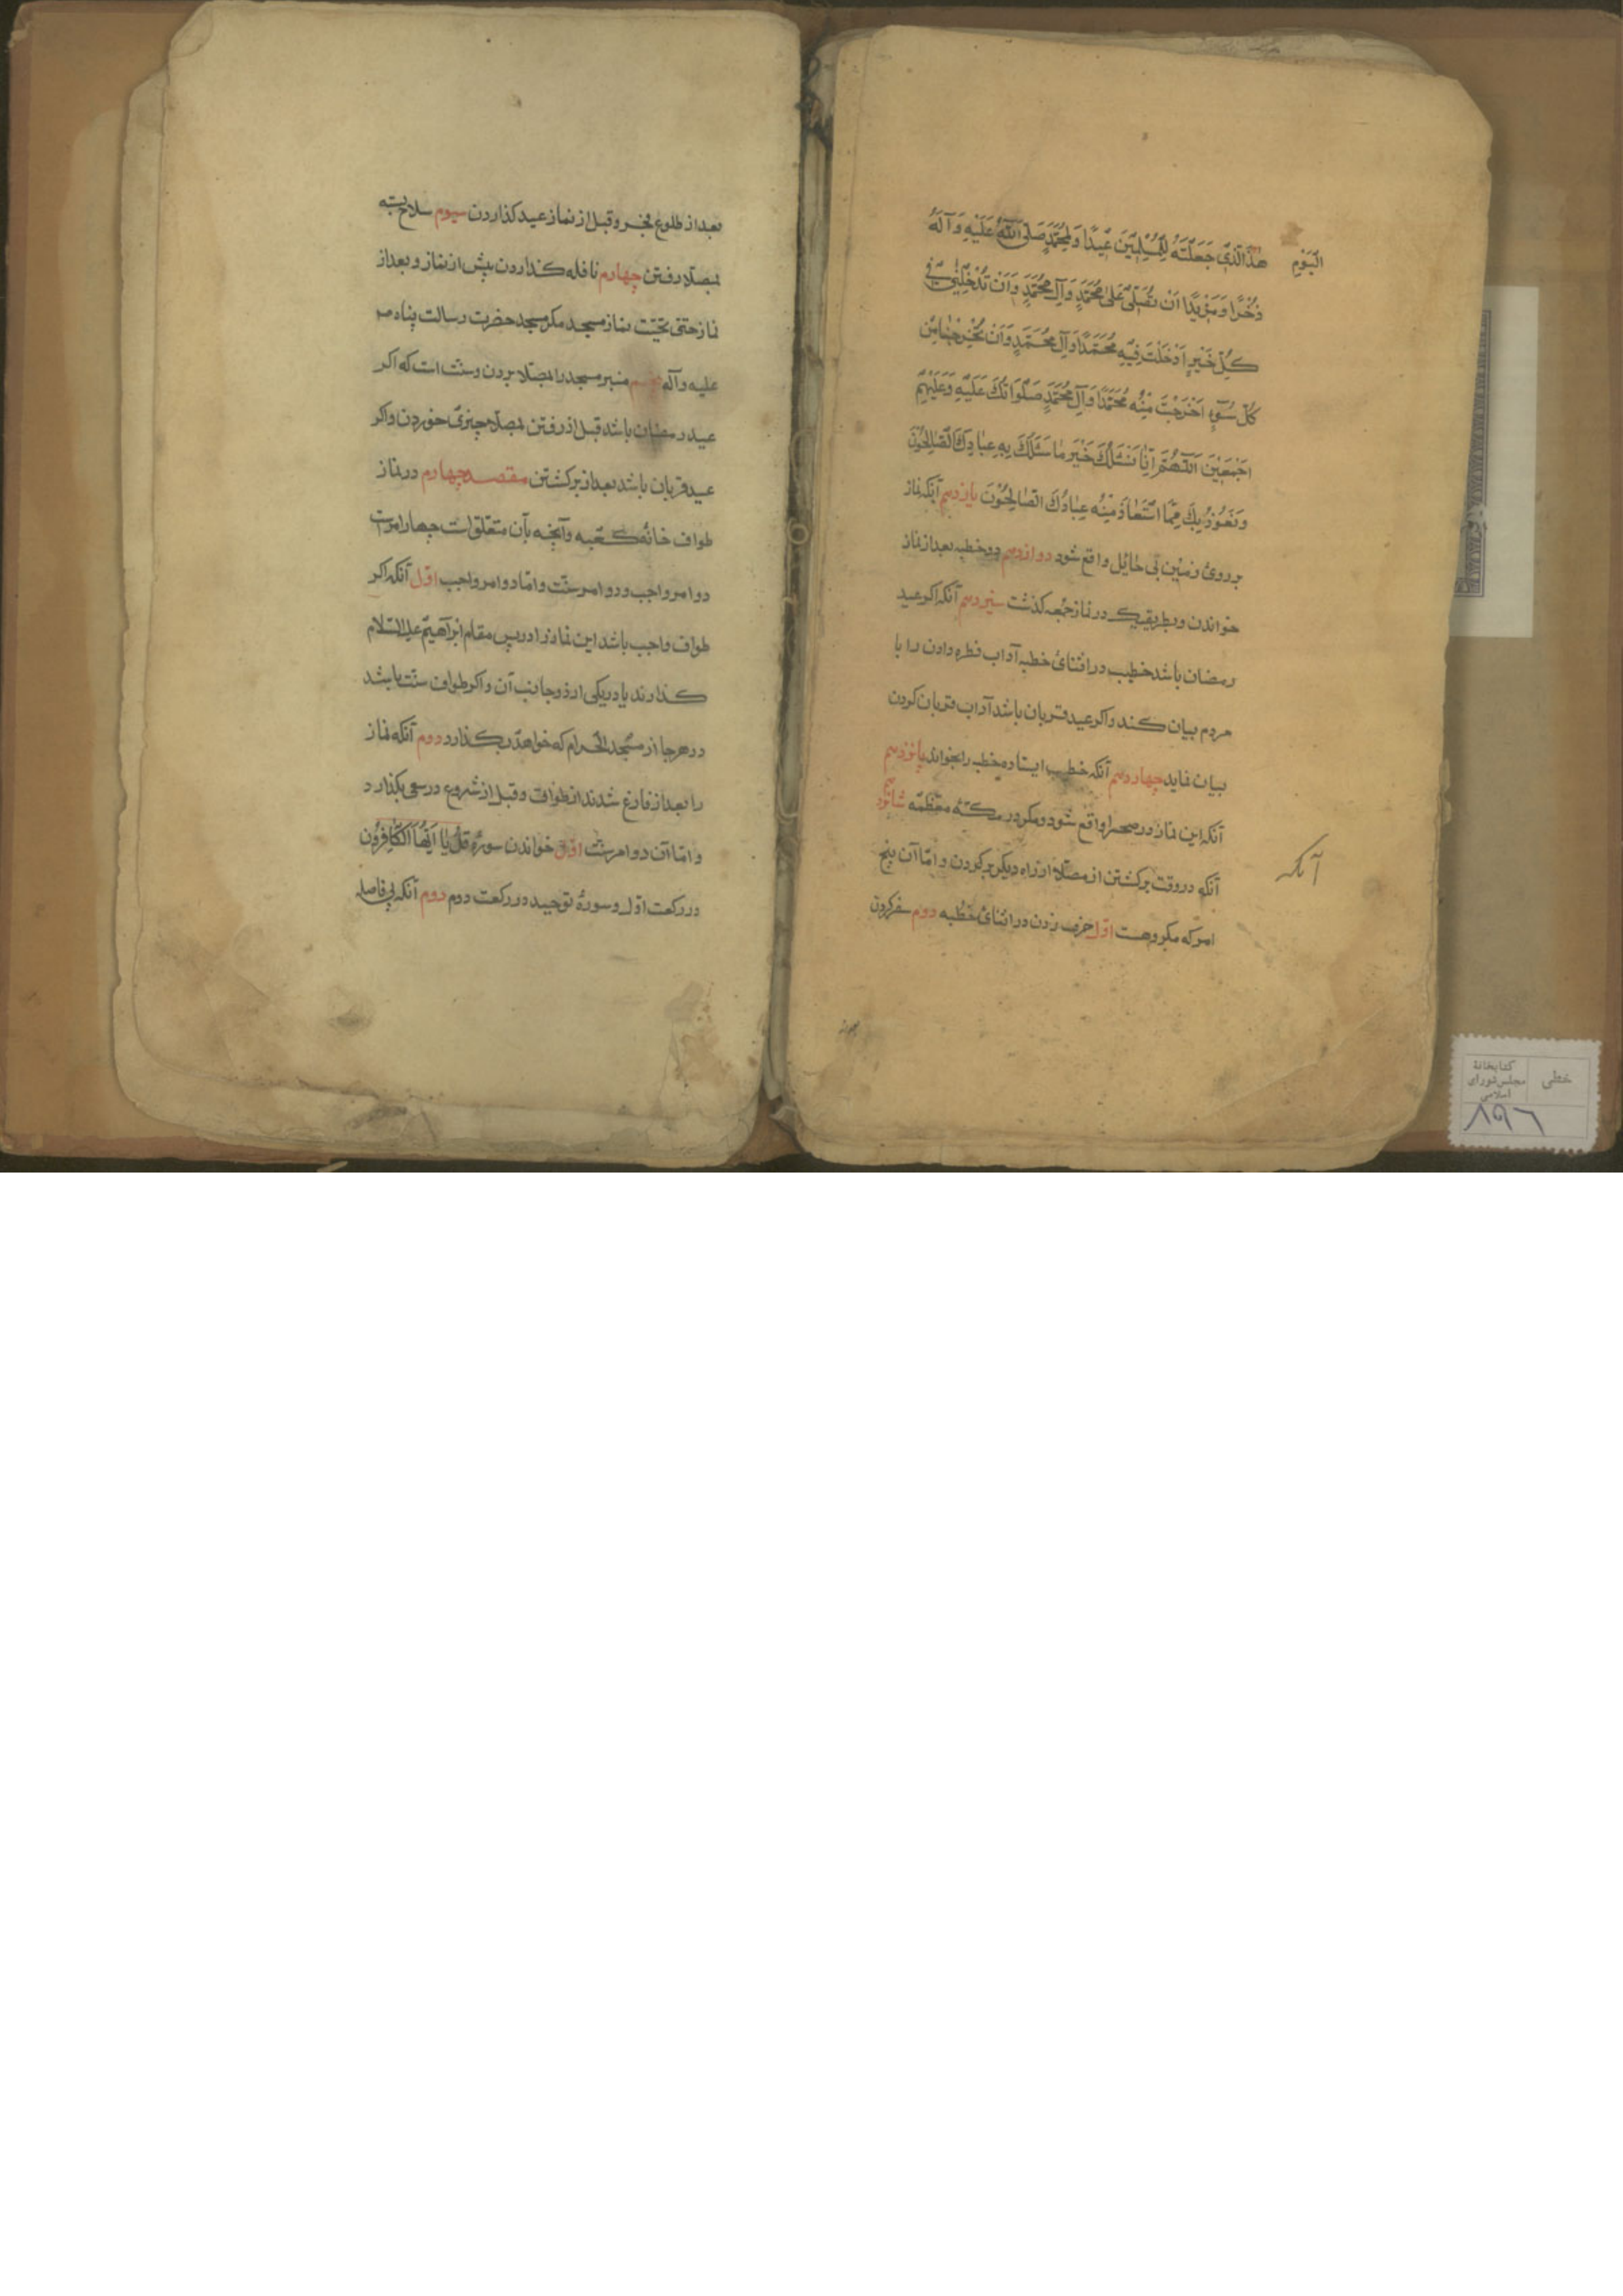 الْيَوْمِ
هذَا الَّذِي جَعَلْتَهُ لِلْمُسْلِمِينَ عِيدًا وَلِمُحَمَّدٍ صَلَّى اللّهُ عَلَيْهِ وَآلِهِ
ذُخْرًا وَمَزِيدًا اَنْ تُصَلِّيَ عَلى مُحَمَّدٍ وَآلِ مُحَمَّدٍ وَاَنْ تُدْخِلَنِي فِي
كُلِّ خَيْرٍ اَدْخَلْتَ فِيهِ مُحَمَّدًا وَآلَ مُحَمَّدٍ وَاَنْ تُخْرِجَنِي مِنْ
كُلِّ سُوءٍ اَخْرَجْتَ مِنْهُ مُحَمَّدًا وَآلَ مُحَمَّدٍ صَلَوَاتُكَ عَلَيْهِ وَعَلَيْهِمْ
اَجْمَعِينَ اَللّهُمَّ اِنَّا نَسْئَلُكَ خَيْرَ مَا سَئَلَكَ بِهِ عِبَادُكَ الصَّالِحُونَ
وَنَعُوذُ بِكَ مِمَّا اسْتَعَاذَ مِنْهُ عِبَادُكَ الصَّالِحُونَ يازدهم آنكه نماز
بر روی زمین بی حائل واقع شود دوازدهم دو خطبه بعد از نماز
خواندن بطریقیکه در نماز جمعه کذشت سیزدهم آنکه اکر عید
رمضان باشد خطیب در اثنای خطبه آداب فطره دادن را با
مردم بیان کند و اکر عید قربان باشد آداب قربان کردن
بیان نماید چهاردهم آنکه خطیب ایستاده خطبه را بخواند پانزدهم
آنکه این نماز در صحرا واقع شود مکر در مکّهٔ معظّمه شانزدهم
آنکه در وقت برکشتن از مصلّا از راه دیکر برکردن و امّا آن پنج
آنکه
امر که مکروهست اوّل حرف زدن در اثنای خطبه دوم سفر کردن
بعد از طلوع فجر و قبل از نماز عید کذاردن سیوم سلاح بسته
بمصلّا رفتن چهارم نافله کذاردن پیش از نماز و بعد از
نماز حتی تحیّت نماز مسجد مکر مسجد حضرت رسالت پناه ص
علیه و آله پنجم منبر مسجد را بمصلّا بردن و سنّت است که اکر
عید رمضان باشد قبل از رفتن بمصلّا چیزی خوردن و اکر
عید قربان باشد بعد از برکشتن مقصد چهارم در نماز
طواف خانهٔ کعبه و آنچه بآن متعلّق است چهار امر است
دو امر واجب و دو امر سنّت و امّا دو امر واجب اوّل آنکه اکر
طواف واجب باشد این نماز را در پس مقام ابراهیم علیه السلام
کذارند یا در یکی از دو جانب آن و اکر طواف سنّت باشد
در هر جا از مسجد الحرام که خواهد بکذارد دوم آنکه نماز
را بعد از فارغ شدن از طواف و قبل از شروع در سعی بکذارد
و امّا آن دو امر سنّت اوّل خواندن سورهٔ قُلْ يَا اَيُّهَا الْكَافِرُونَ
در رکعت اوّل و سورهٔ توحید در رکعت دوم دوم آنکه بی فاصله
خطی
کتابخانهٔ
مجلس شورای
اسلامی
۸۹۶